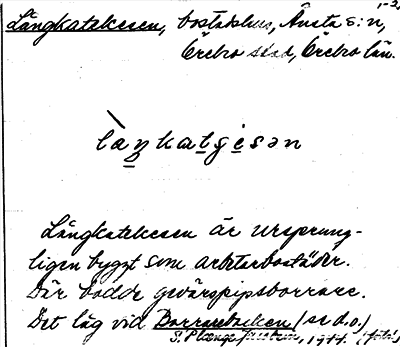 1-2
Långkatekesen, bostadshus, Ånsta s:n,
Örebro stad, Örebro län.
Långkatekesen är ursprung-
ligen byggt som arbetarbostäder.
Där bodde gevärspipsborrare.
Det låg vid Borrarebacken (se d.o.)
1944. (foto)